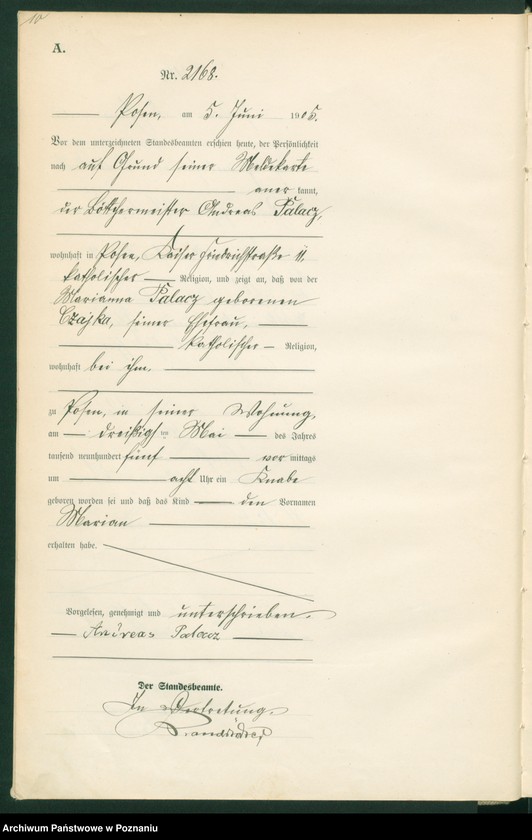 10
A.
Nr. 2168.
Posen, am 5. Juni 1905.
Vor dem unterzeichneten Standesbeamten erschien heute, der Persönlichkeit
nach auf Grund seiner Meldekarte
anerkannt,
der Böttchermeister Andreas Palacz,
wohnhaft in Posen, Kaiser Friedrichstraße 11.
katholischer Religion, und zeigt an, daß von der
Marianna Palacz geborenen
Czajka, seiner Ehefrau,
katholischer Religion,
wohnhaft bei ihm,
zu Posen, in seiner Wohnung,
am dreißigsten Mai des Jahres
tausend neunhundert fünf vor mittags
um acht Uhr ein Knabe
geboren worden sei und daß das Kind den Vornamen
Marian
erhalten habe.
Vorgelesen, genehmigt und unterschrieben.
Andreas Palacz
Der Standesbeamte.
In Vertretung.
Archiwum Państwowe w Poznaniu